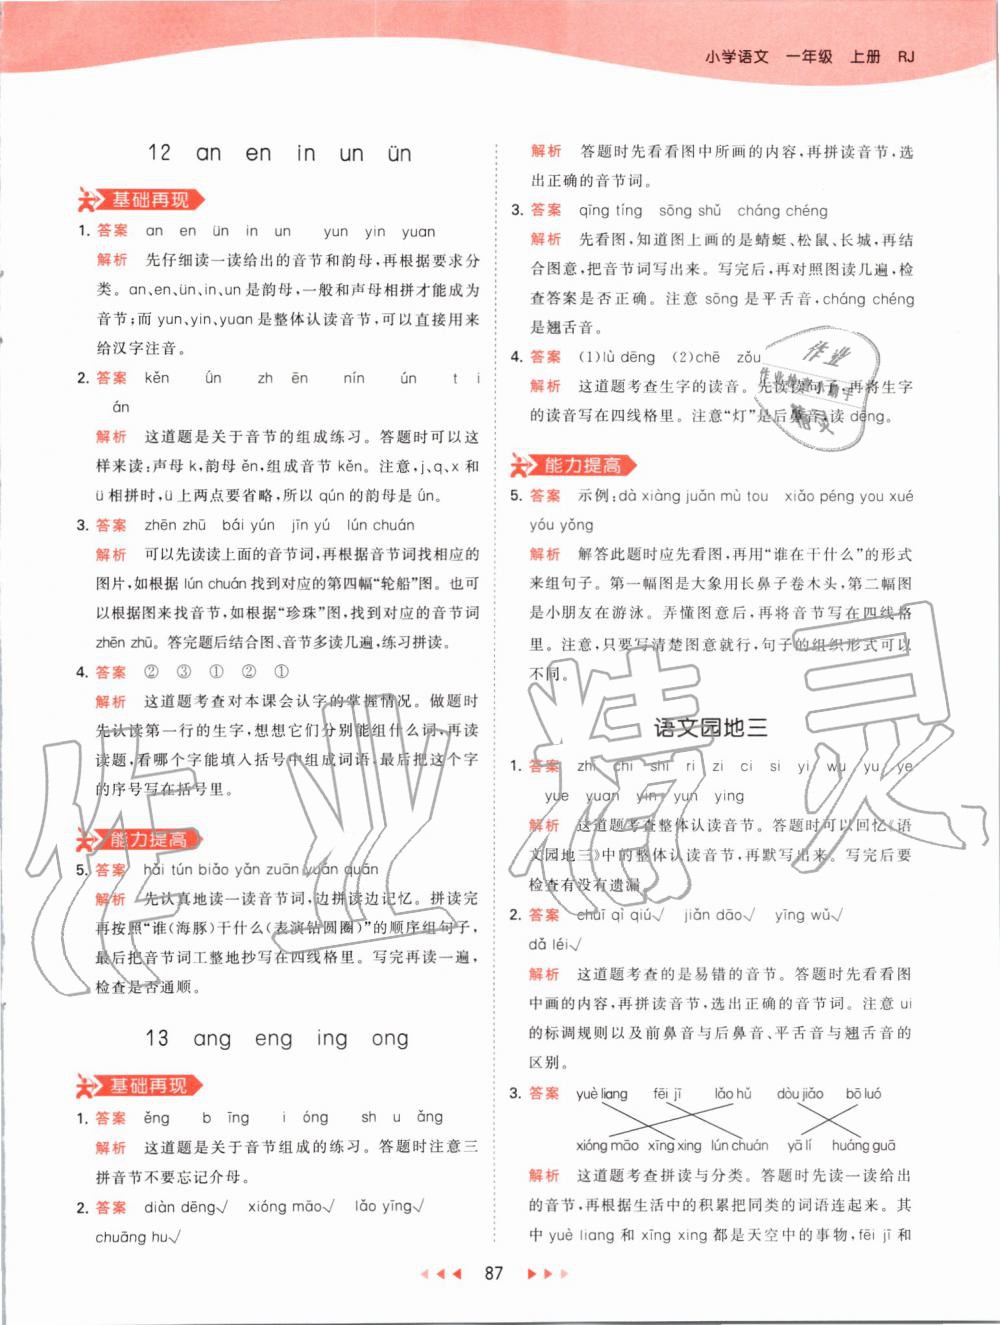 小学语文 一年级 上册 RJ
12 an en in un ün
基础再现
1. 答案 an en ün in un yun yin yuan
解析 先仔细读一读给出的音节和韵母,再根据要求分
类。an、en、ün、in、un是韵母,一般和声母相拼才能成为
音节;而yun、yin、yuan是整体认读音节,可以直接用来
给汉字注音。
2. 答案 kěn ǘn zh ēn nín ún t i
án
解析 这道题是关于音节的组成练习。答题时可以这
样来读:声母k,韵母ěn,组成音节kěn。注意,j、q、x和
ü上拼时,ü上两点要省略,所以qún的韵母是ǘn。
3. 答案 zhēn zhū bái yún jīn yú lún chuán
解析 可以先读读上面的音节词,再根据音节词找相应的
图片,如根据lún chuán找到对应的第四幅“轮船”图。也可
以根据图来找音节,如根据“珍珠”图,找到对应的音节词
zhēn zhū。答完题后结合图、音节多读几遍,练习拼读。
4. 答案 ② ③ ① ② ①
解析 这道题考查对本课会认字的掌握情况。做题时
先认读第一行的生字,想想它们分别能组什么词,再读
读题,看哪个字能填入括号中组成词语,最后把这个字
的序号写在括号里。
能力提高
5. 答案 hǎi tún biǎo yǎn zuān yuán quān
解析 先认真地读一读音节词,边拼读边记忆。拼读完
再按照“谁(海豚)干什么(表演钻圆圈)”的顺序组句子,
最后把音节词工整地抄写在四线格里。写完再读一遍,
检查是否通顺。
13 ang eng ing ong
基础再现
1. 答案 ěng b īng i óng sh u ǎng
解析 这道题是关于音节组成的练习。答题时注意三
拼音节不要忘记介母。
2. 答案 diàn dēng√ xióng māo√ lǎo yīng√
chuāng hu√
解析 答题时先看看图中所画的内容,再拼读音节,选
出正确的音节词。
3. 答案 qīng tíng sōng shǔ cháng chéng
解析 先看图,知道图上画的是蜻蜓、松鼠、长城,再结
合图意,把音节词写出来。写完后,再对照图读几遍,检
查答案是否正确。注意sōng是平舌音,cháng chéng
是翘舌音。
4. 答案 (1)lù dēng (2)chē zǒu
解析 这道题考查生字的读音。先读读句子,再将生字
的读音写在四线格里。注意“灯”是后鼻音,读dēng。
能力提高
5. 答案 示例:dà xiàng juǎn mù tou xiǎo péng you xué
yóu yǒng
解析 解答此题时应先看图,再用“谁在干什么”的形式
来组句子。第一幅图是大象用长鼻子卷木头,第二幅图
是小朋友在游泳。弄懂图意后,再将音节写在四线格
里。注意,只要写清楚图意就行,句子的组织形式可以
不同。
语文园地三
1. 答案 zhi chi shi ri zi ci si yi wu yu ye
yue yuan yin yun ying
解析 这道题考查整体认读音节。答题时可以回忆《语
文园地三》中的整体认读音节,再默写出来。写完后要
检查有没有遗漏。
2. 答案 chuī qì qiú√ jiǎn dāo√ yīng wǔ√
dǎ léi√
解析 这道题考查的是易错的音节。答题时先看看图
中画的内容,再拼读音节,选出正确的音节词。注意ui
的标调规则以及前鼻音与后鼻音、平舌音与翘舌音的
区别。
3. 答案 yuè liang fēi jī lǎo hǔ dòu jiǎo bō luó
xióng māo xīng xing lún chuán yā lí huáng guā
解析 这道题考查拼读与分类。答题时先读一读给出
的音节,再根据生活中的积累把同类的词语连起来。其
中yuè liang和xīng xing都是天空中的事物,fēi jī和
87
作业精灵